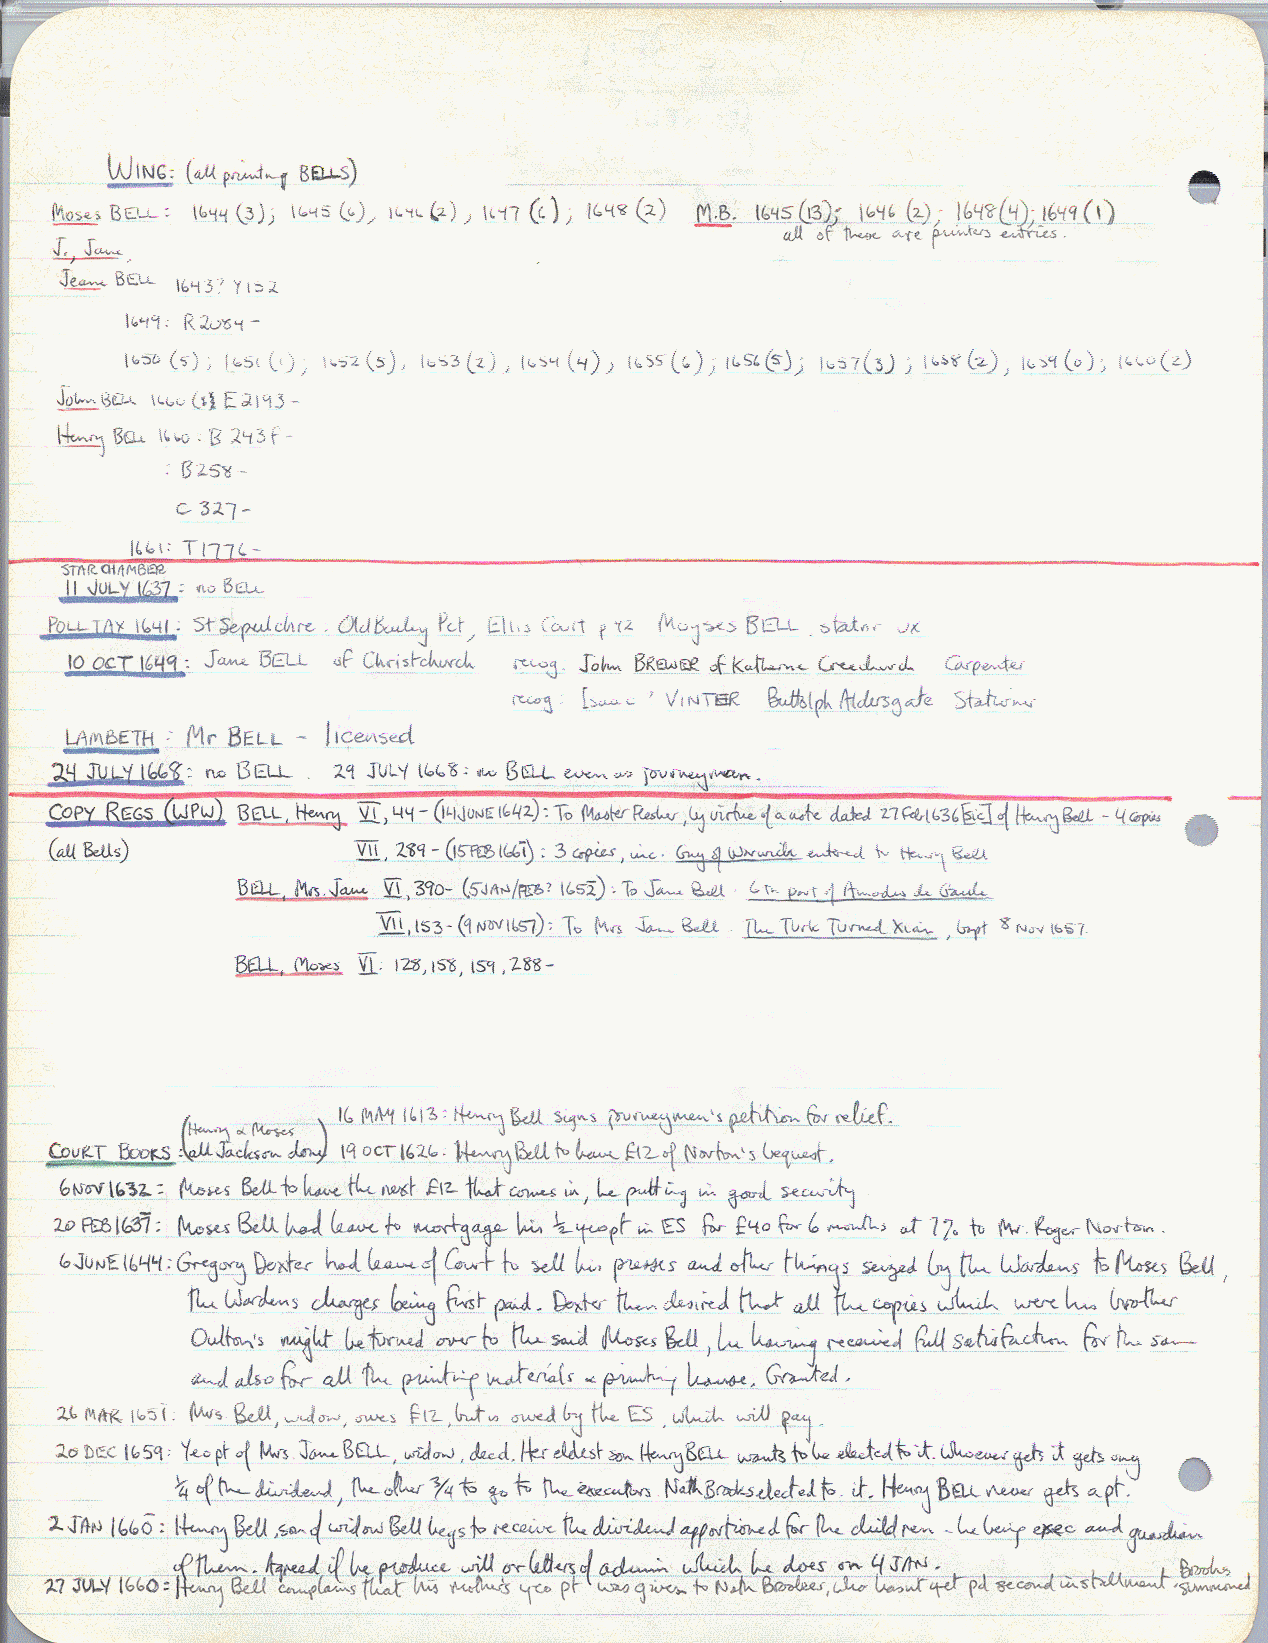 WING: (all printing BELLS)
Moses BELL: 1644 (3); 1645 (6), 1646 (2), 1647 (6); 1648 (2) M.B. 1645 (13); 1646 (2); 1648 (4); 1649 (1)
all of these are printers entries.
J., Jane,
Jeane BELL 1643? Y152
1649: R2084-
1650 (5); 1651 (1); 1652 (5), 1653 (2), 1654 (4), 1655 (6); 1656 (5); 1657 (3); 1658 (2), 1659 (0); 1660 (2)
John BELL 1660 E2193-
Henry BELL 1660: B 243f-
: B258-
C 327-
1661: T1776-
STAR CHAMBER
11 JULY 1637: no BELL
POLL TAX 1641: St Sepulchre. Old Bailey Pct, Ellis Court p 42 Moyses BELL, statnr ux
10 OCT 1649: Jane BELL of Christchurch recog. John BREWER of Katherine Creechurch Carpenter
recog: Isaac VINTER Buttolph Aldersgate Stationer
LAMBETH: Mr BELL - licensed
24 JULY 1668: no BELL. 29 JULY 1668: no BELL even as journeyman.
COPY REGS (WPW) BELL, Henry VI, 44- (14 JUNE 1642): To Master Flesher, by virtue of a note dated 27 Feb 1636 [sic] of Henry Bell - 4 copies
(all Bells) VII, 289- (15 FEB 1661): 3 copies, inc. Guy of Warwick entered to Henry Bell
BELL, Mrs. Jane VI, 390- (5 JAN/FEB? 1652): To Jane Bell. 6th part of Amadis de Gaule
VII, 153- (9 NOV 1657): To Mrs Jane Bell. The Turk Turned Xian, bapt 8 Nov 1657.
BELL, Moses VI: 128, 158, 159, 288-
16 MAY 1613: Henry Bell signs journeymen's petition for relief.
COURT BOOKS: (Henry & Moses all Jackson done) 19 OCT 1626: Henry Bell to have £12 of Norton's bequest.
6 NOV 1632: Moses Bell to have the next £12 that comes in, he putting in good security
20 FEB 1637: Moses Bell had leave to mortgage his ½ yeo pt in ES for £40 for 6 months at 7% to Mr. Roger Norton.
6 JUNE 1644: Gregory Dexter had leave of Court to sell his presses and other things seized by the Wardens to Moses Bell,
the Wardens charges being first paid. Dexter then desired that all the copies which were his brother
Oulton's might be turned over to the said Moses Bell, he having received full satisfaction for the same
and also for all the printing materials & printing house. Granted.
26 MAR 1651: Mrs. Bell, widow, owes £12, but is owed by the ES, which will pay.
20 DEC 1659: Yeo pt of Mrs. Jane BELL, widow, decd. Her eldest son Henry BELL wants to be elected to it. Whoever gets it gets only
¼ of the dividend, the other 3/4 to go to the executors. Nath Brooks elected to it. Henry BELL never gets a pt.
2 JAN 1660: Henry Bell, son of widow Bell begs to receive the dividend apportioned for the children - he being exec and guardian
of them. Agreed if he produce will or letters of admin which he does on 4 JAN.
27 JULY 1660: Henry Bell complains that his mother's yeo pt was given to Nath Brookes, who hasn't yet pd second installment. Brooks summoned